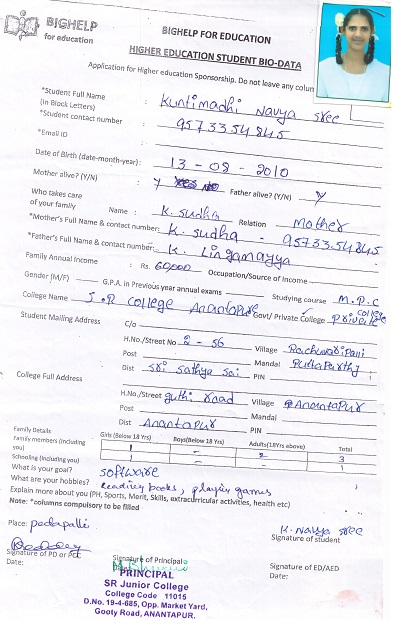 BIGHELP
for education
BIGHELP FOR EDUCATION
HIGHER EDUCATION STUDENT BIO-DATA
Application for Higher education Sponsorship. Do not leave any colum
*Student Full Name : Kuntimadhi Navya Sree
(In Block Letters)
*Student contact number : 9573354845
*Email ID :
Date of Birth (date-month-year): 13 - 08 - 2010
Mother alive? (Y/N) Y Father alive? (Y/N) Y
Who takes care of your family Name : K. Sudha Relation Mother
*Mother's Full Name & contact number: K. Sudha - 9573354845
*Father's Full Name & contact number: K. Lingamayya
Family Annual Income : Rs. 60,000 Occupation/Source of Income
Gender (M/F) G.P.A. in Previous year annual exams Studying course M.P.C
College Name : S.R College Anantapure Govt/ Private College Private college
Student Mailing Address C/o
H.No./Street No 2 - 56 Village Rachuvaripalli
Post Mandal Puttaparthy
Dist Sri Sathya Sai PIN
College Full Address
H.No./Street guthi road Village Anantapur
Post Mandal
Dist Anantapur PIN
Family Details Girls (Below 18 Yrs) Boys(Below 18 Yrs) Adults(18Yrs above) Total
Family members (Including you) 1 - 2 3
Schooling (Including you) 1 - - 1
What is your goal? Software
What are your hobbies? reading books, playing games
Explain more about you (PH, Sports, Merit, Skills, extracurricular activities, health etc)
Note: *columns compulsory to be filled
Place: pedapalli
K. Navya Sree
Signature of student
Signature of PD or PCC Signature of Principal Signature of ED/AED
Date: Date: Date:
PRINCIPAL
SR Junior College
College Code 11015
D.No. 19-4-685, Opp. Market Yard,
Gooty Road, ANANTAPUR.